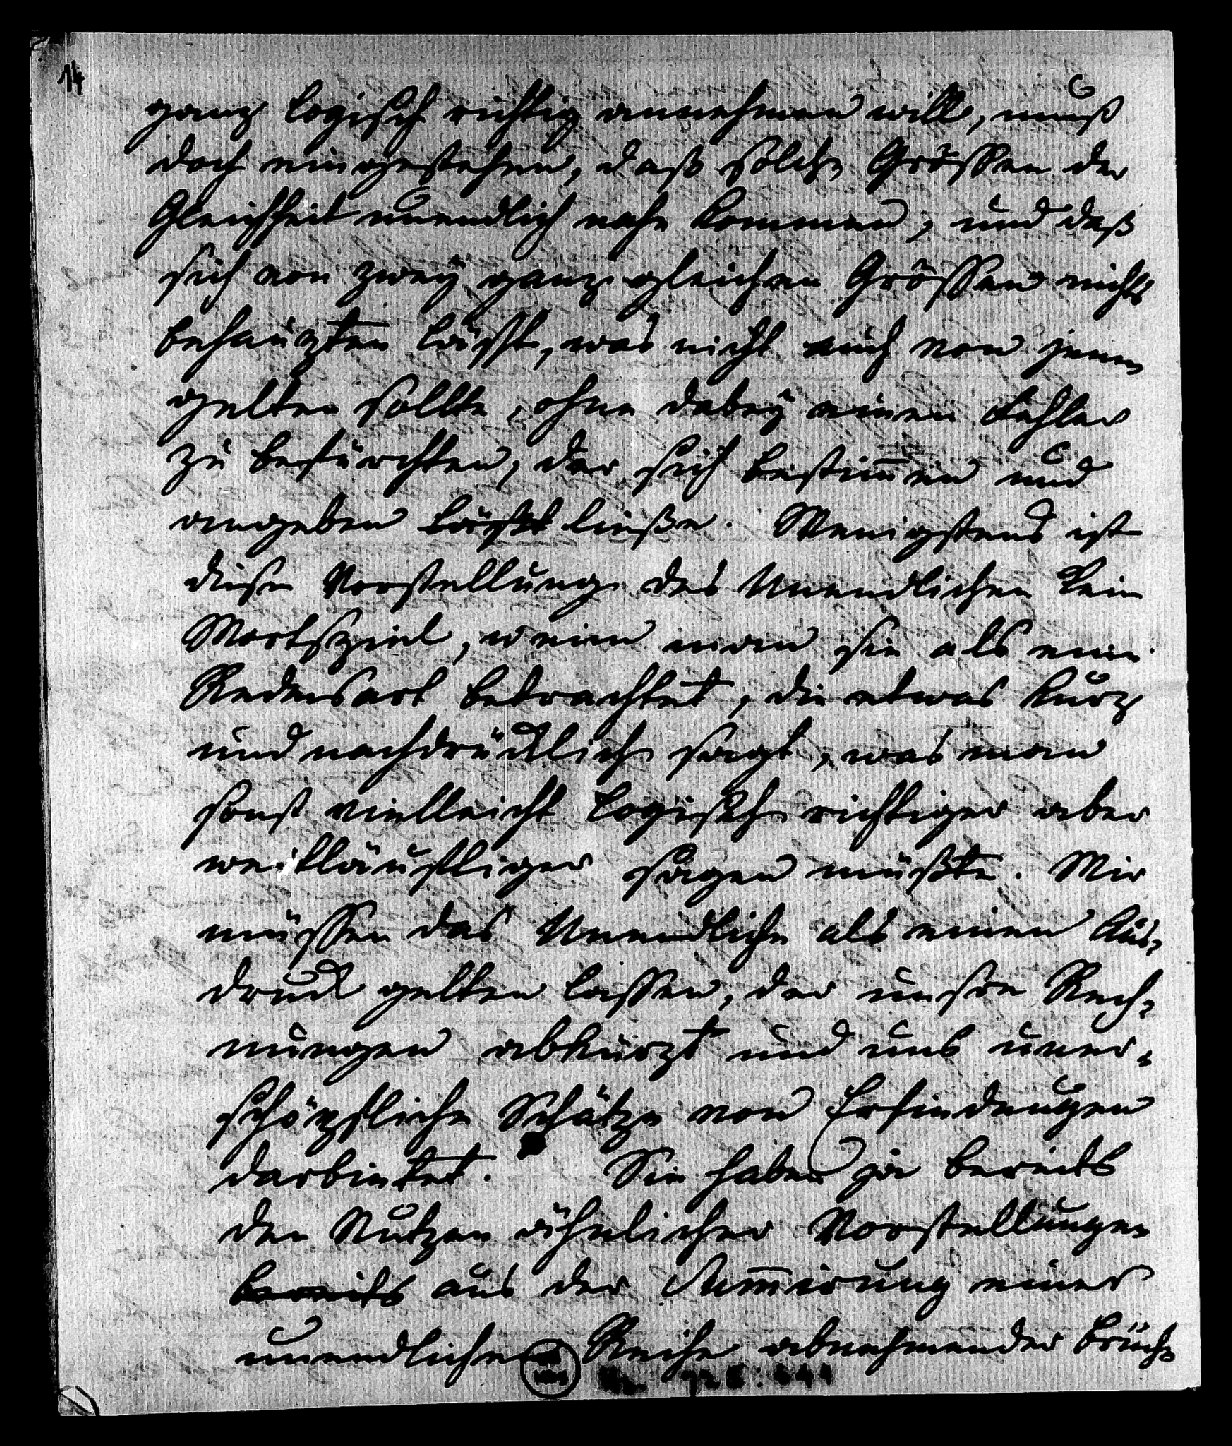 14
6
ganz logisch richtig annehmen will, muß
doch eingestehen, daß solche Grössen der
Gleichheit unendlich nahe kommen, und daß
sich von zwey ganz gleichen Grössen nichts
behaupten lässt, was nicht auch von jenen
gelten sollte, ohne dabey einen Fehler
zu befürchten, der sich bestim̅en und
angeben lässt ließe. Wenigstens ist
diese Vorstellung des Unendlichen kein
Wortspiel, wenn man sie als eine
Redensart betrachtet, die etwas kurz
und nachdrücklich sagt, was man
sonst vielleicht logisch richtiger aber
weitläuftiger sagen müßte. Wir
müssen das Unendliche als einen Aus¬
druck gelten lassen, der unsre Rech¬
nungen abkürzt und uns uner¬
schöpfliche Schätze von Erfindungen
darbietet. Sie haben ja bereits
den Nutzen ähnlicher Vorstellungen
bereits aus der Sum̅irung einer
unendlichen Reihe abnehmender Brüche